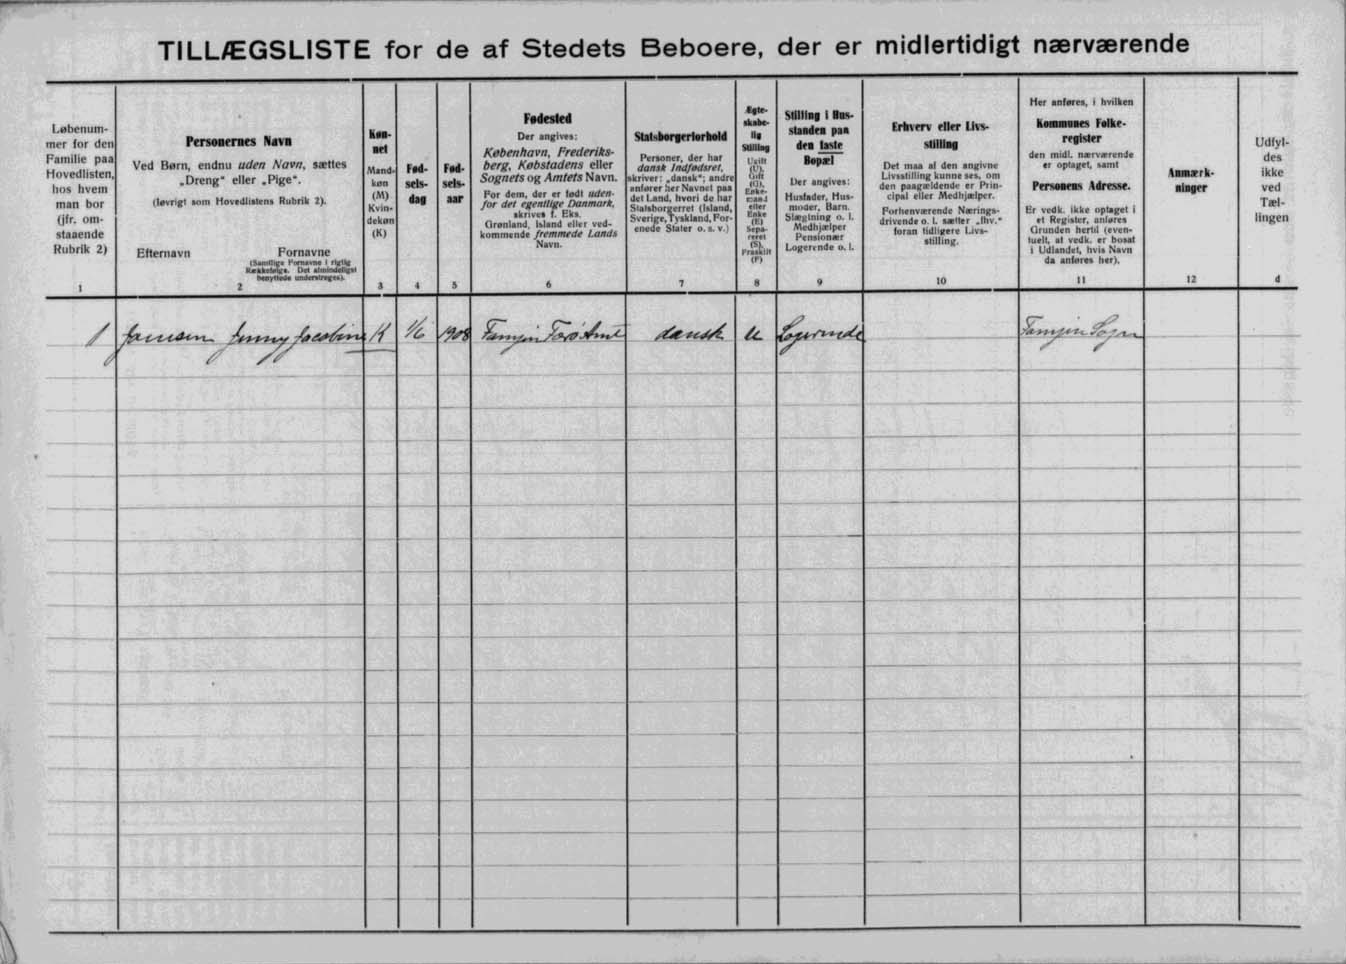 TILLÆGSLISTE for de af Stedets Beboere, der er midlertidigt nærværende
Løbenum-
mer for den
Familie paa
Hovedlisten,
hos hvem
man bor
(jfr. om-
staaende
Rubrik 2)
1
Personernes Navn
Ved Børn, endnu uden Navn, sættes
„Dreng“ eller „Pige“.
(Iøvrigt som Hovedlistens Rubrik 2).
Efternavn
Fornavne
(Samtlige Fornavne i rigtig
Rækkefølge. Det almindeligst
benyttede understreges).
2
Køn-
net
Mand-
køn
(M)
Kvin-
dekøn
(K)
3
Fød-
sels-
dag
4
Fød-
sels-
aar
5
Fødested
Der angives:
København, Frederiks-
berg, Købstadens eller
Sognets og Amtets Navn.
For dem, der er født uden-
for det egentlige Danmark,
skrives f. Eks.
Grønland, Island eller ved-
kommende fremmede Lands
Navn.
6
Statsborgerforhold
Personer, der har
dansk Indfødsret,
skriver: „dansk“; andre
anfører her Navnet paa
det Land, hvori de har
Statsborgerret (Island,
Sverige, Tyskland, For-
enede Stater o. s. v.)
7
Ægte-
skabe-
lig
Stilling
Ugift
(U),
Gift
(G),
Enke-
mand
eller
Enke
(E)
Sepa-
reret
(S),
Fraskilt
(F)
8
Stilling i Hus-
standen paa
den faste
Bopæl
Der angives:
Husfader, Hus-
moder, Barn.
Slægtning o. l.
Medhjælper
Pensionær
Logerende o. l.
9
Erhverv eller Livs-
stilling
Det maa af den angivne
Livsstilling kunne ses, om
den paagældende er Prin-
cipal eller Medhjælper.
Forhenværende Nærings-
drivende o. l. sætter „fhv.“
foran tidligere Livs-
stilling.
10
Her anføres, i hvilken
Kommunes Folke-
register
den midl. nærværende
er optaget, samt
Personens Adresse.
Er vedk. ikke optaget i
et Register, anføres
Grunden hertil (even-
tuelt, at vedk. er bosat
i Udlandet, hvis Navn
da anføres her).
11
Anmærk-
ninger
12
Udfyl-
des
ikke
ved
Tæl-
lingen
d
1 Joensen Jenny Jacobine K 1/6 1908 Famjin Færø Amt dansk U Logerende Famjin Sogn